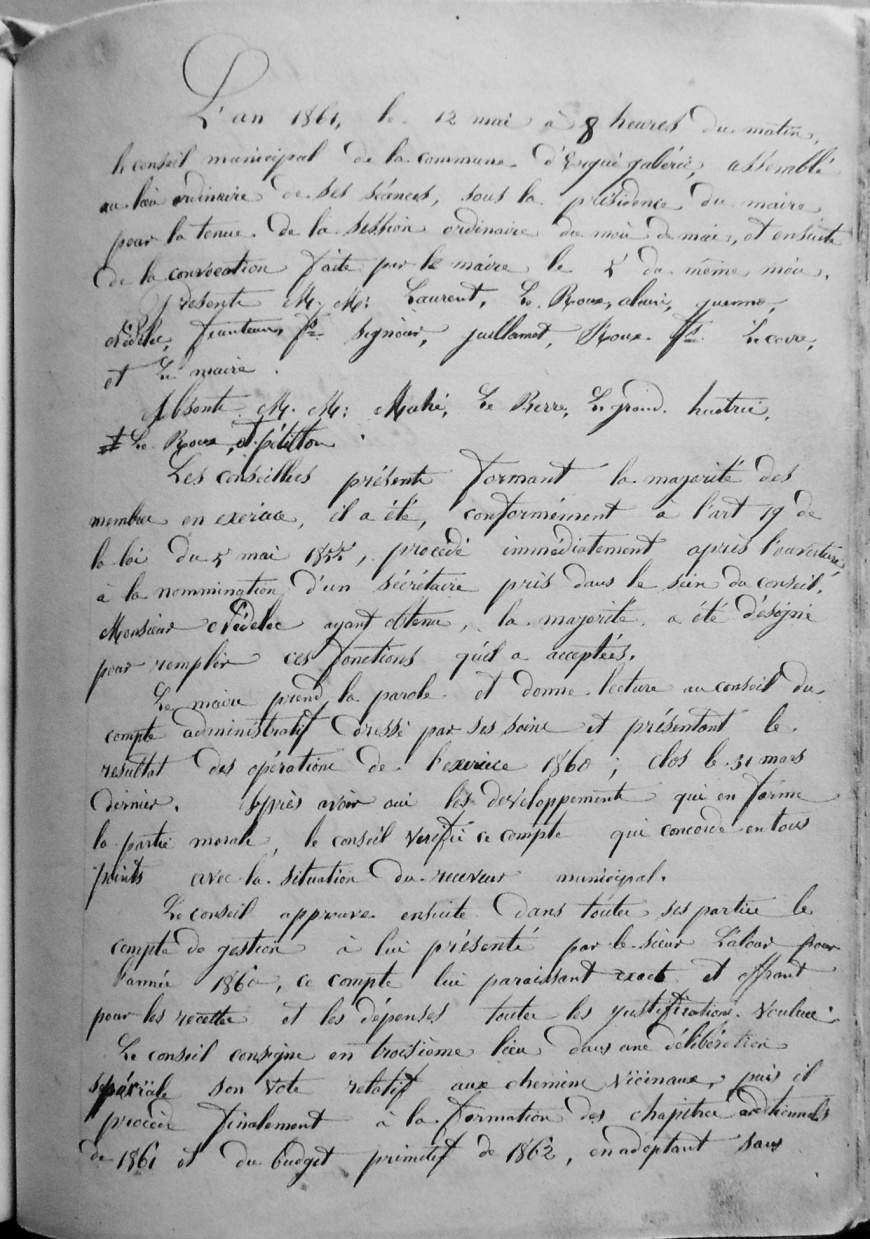 L'an 1861, le 12 mai à 8 heures du matin,
le conseil municipal de la commune d'Ergué gabéric, assemblé
au lieu ordinaire de ses séances, sous la présidence du maire
pour la tenue de la session ordinaire du mois de mai, et ensuite
de la convocation faite par le maire le 5 du même mois.
Présents M. M: Laurent, Le Roux, alain, guenno,
Nédélec, feunteun fs. Signour, guillamot, Roux fs. Lecorre,
et Le maire.
Absents M. M: Mahé, Le Berre, Le grand, huitric,
Le Roux, et pétillon.
Les conseillers présents formant la majorité des
membres en exercice, il a été, conformément a l'art 19 de
la loi du 5 mai 1855, procédé immédiatement après l'ouverture
à la nommination d'un sécrétaire pris dans le sein du conseil.
Monsieur Nédélec ayant obtenu, la majorité, a été désigné
pour remplir ces fonctions qu'il a acceptées.
Le maire prend la parole et donne lecture au conseil du
compte administratif dressé par ses soins et présentant le
resultat des opérations de l'exercice 1860; clos le 31 mars
dernier. Après avoir oui les developpements qui en forme
la partie morale, le conseil verifie ce compte qui concorde en tous
points avec la situation du receveur municipal.
Le conseil approuve ensuite dans toutes ses parties le
compte de gestion à lui présenté par le sieur Lalour pour
l'année 1860, ce compte lui paraissant exact et offrant
pour les recettes et les dépenses toutes les justifications voulues.
Le conseil consigne en troisième lieu dans une délibération
spéciale son vote relatif aux chemins vicinaux, puis il
procède finalement à la formation des chapitres additionnels
de 1861 et du budget primitif de 1862, en adoptant sans